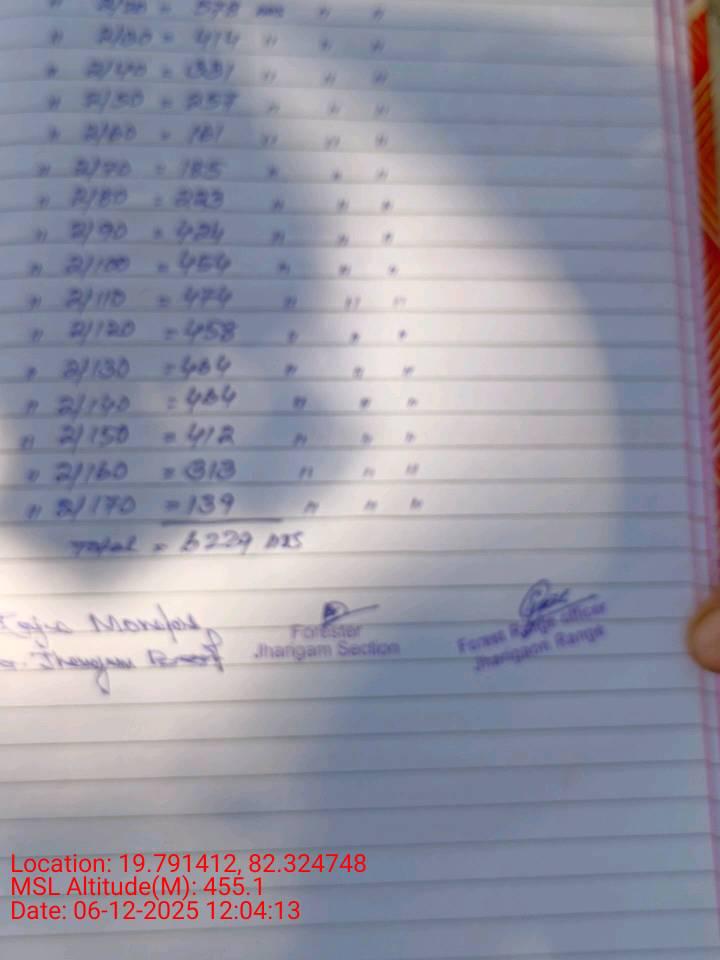 " 2/30 = 414 " " "
" 2/40 = 331 " " "
" 2/50 = 257 " " "
" 2/60 = 161 " " "
" 2/70 = 185 " " "
" 2/80 = 223 " " "
" 2/90 = 424 " " "
" 2/100 = 454 " " "
" 2/110 = 474 " " "
" 2/120 = 458 " " "
" 2/130 = 464 " " "
" 2/140 = 464 " " "
" 2/150 = 412 " " "
" 2/160 = 313 " " "
" 2/170 = 139 " " "
Total =
Forester
Jhangam Section
Forest Range Officer
Jharigaon Range
Location: 19.791412, 82.324748
MSL Altitude(M): 455.1
Date: 06-12-2025 12:04:13